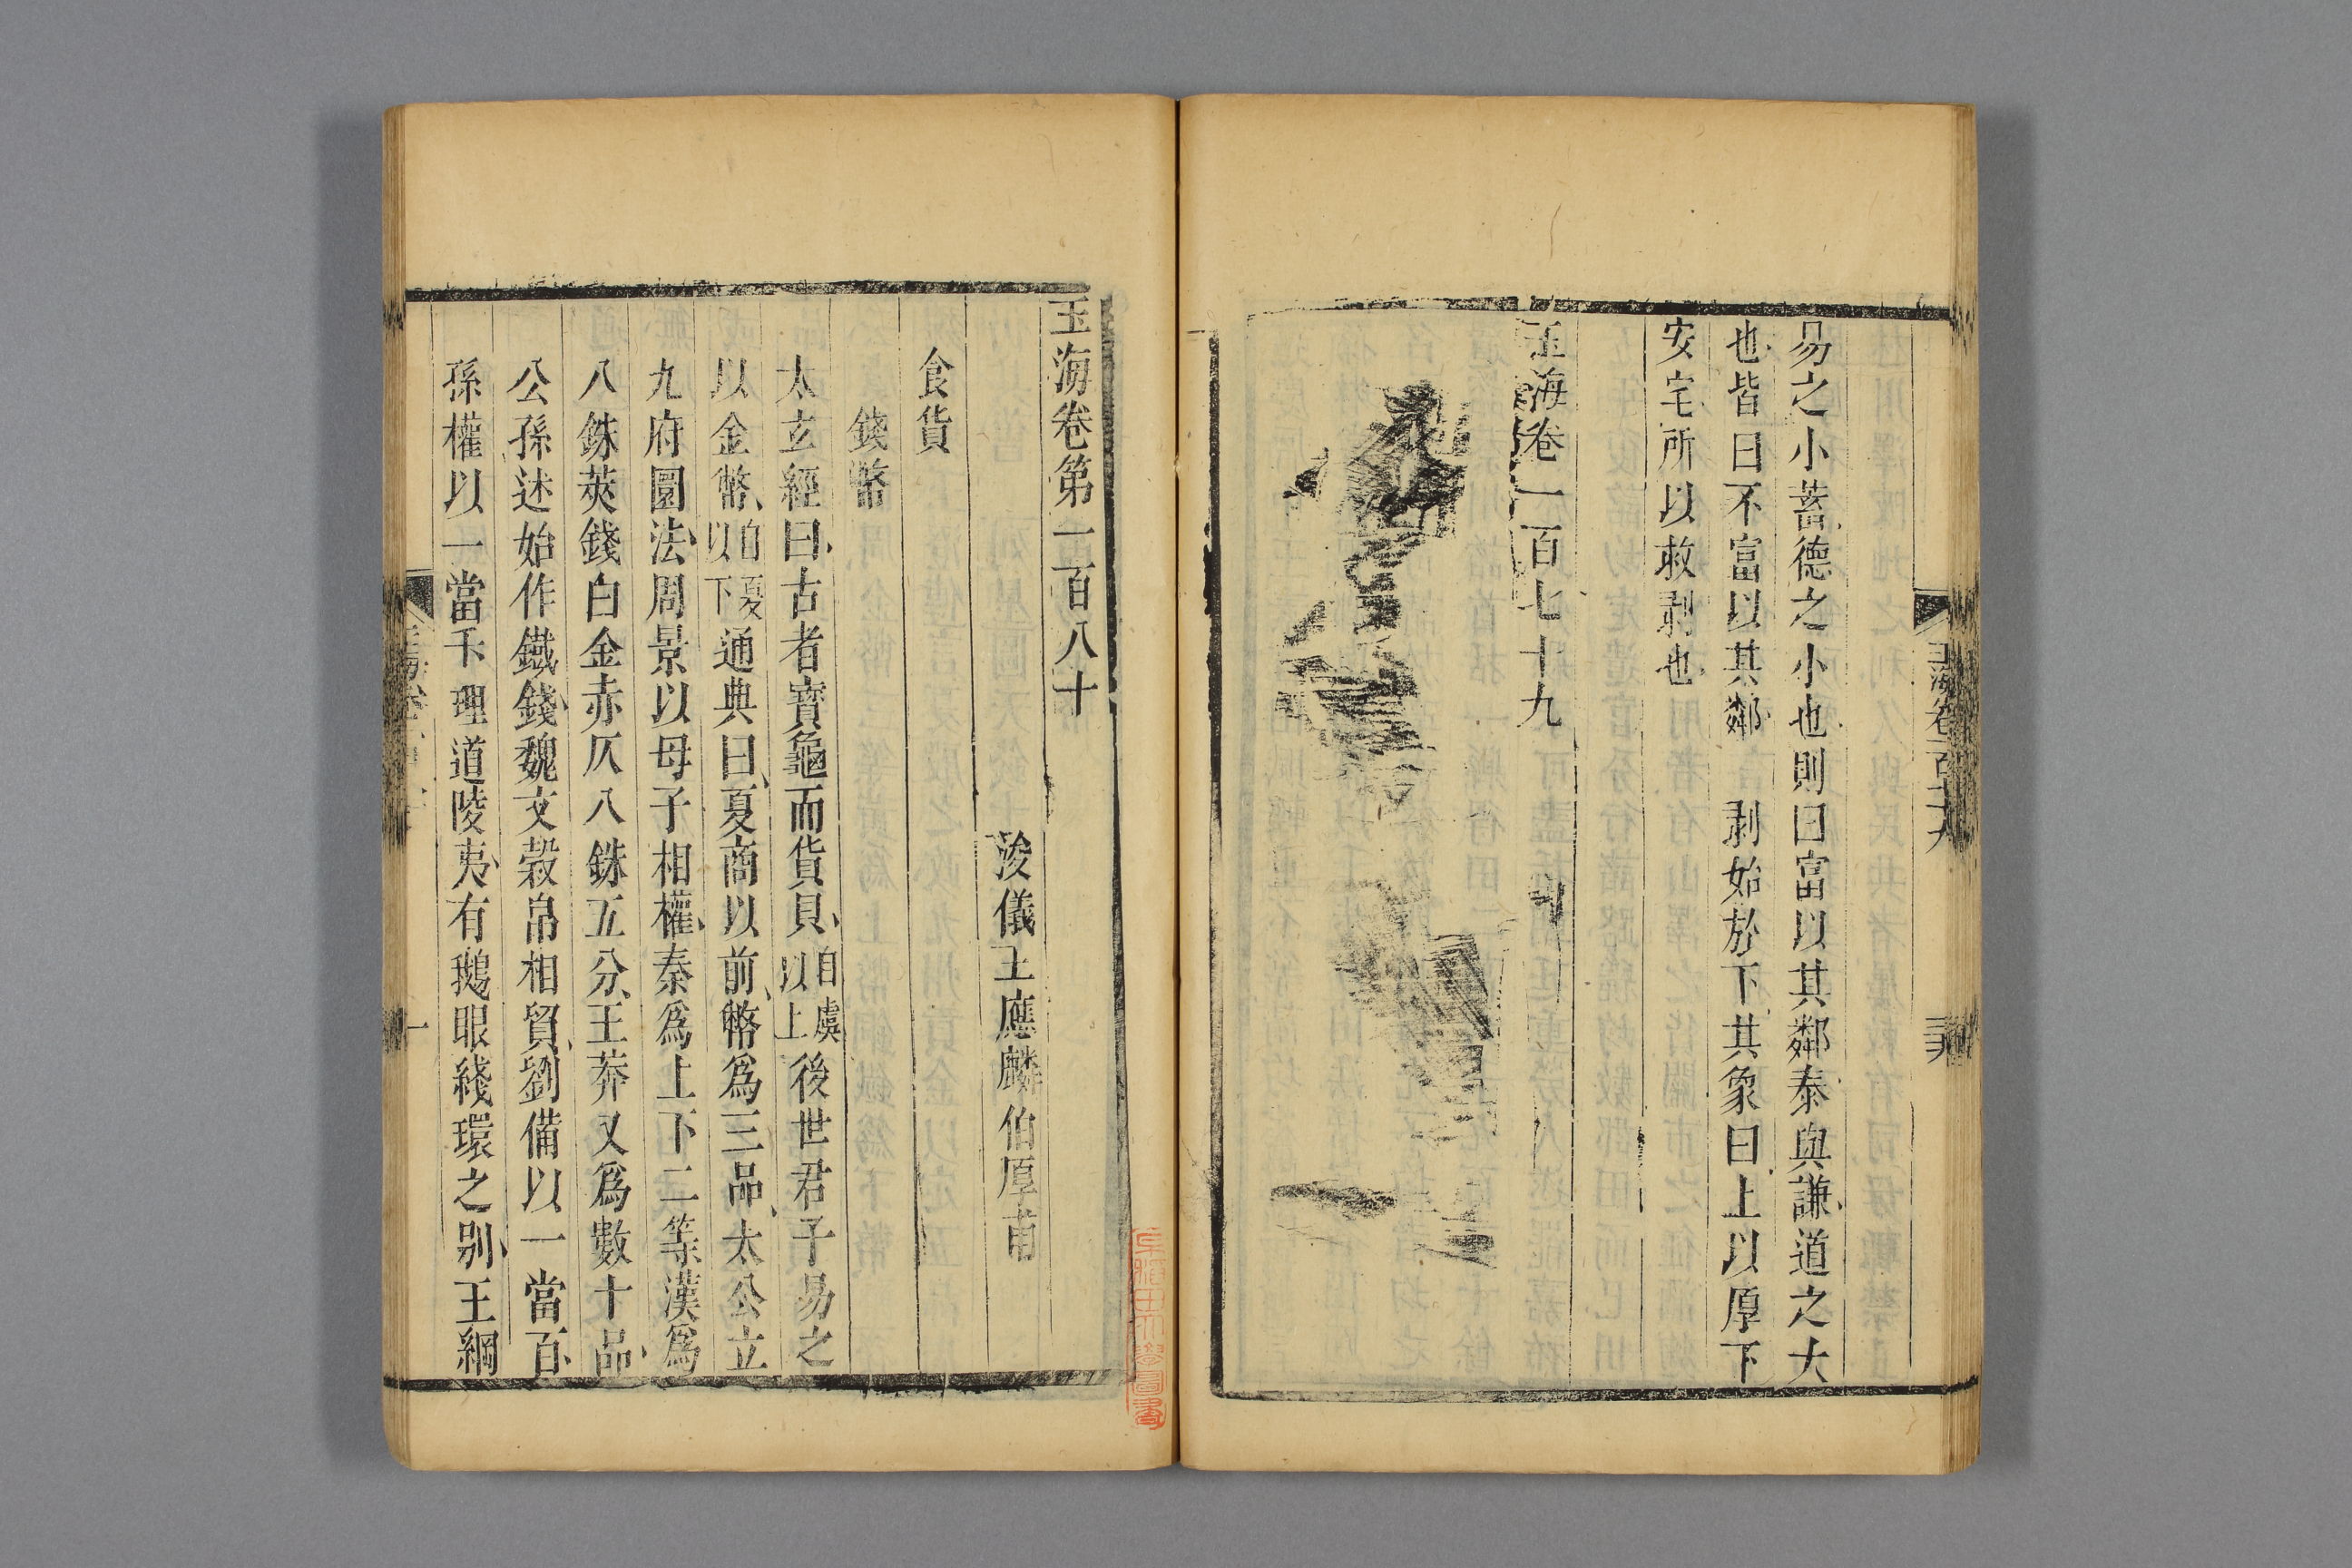 易之小蓄德之小也則曰富以其鄰泰與謙道之大
也皆曰不富以其鄰　剥始於下其象曰上以厚下
安宅所以救剥也
玉海卷一百七十九
玉海卷第一百八十
浚儀王應麟伯厚甫
食貨
錢幣
太玄經曰古者寶龜而貨貝自虞以上後世君子易之
以金幣自夏以下通典曰夏商以前幣爲三品太公立
九府圜法周景以母子相權秦爲上下二等漢爲
八銖莢錢白金赤仄八銖五分王莽又爲數十品
公孫述始作鐵錢魏文穀帛相貿劉備以一當百
孫權以一當千理道陵夷有鵝眼綫環之别王綱
一